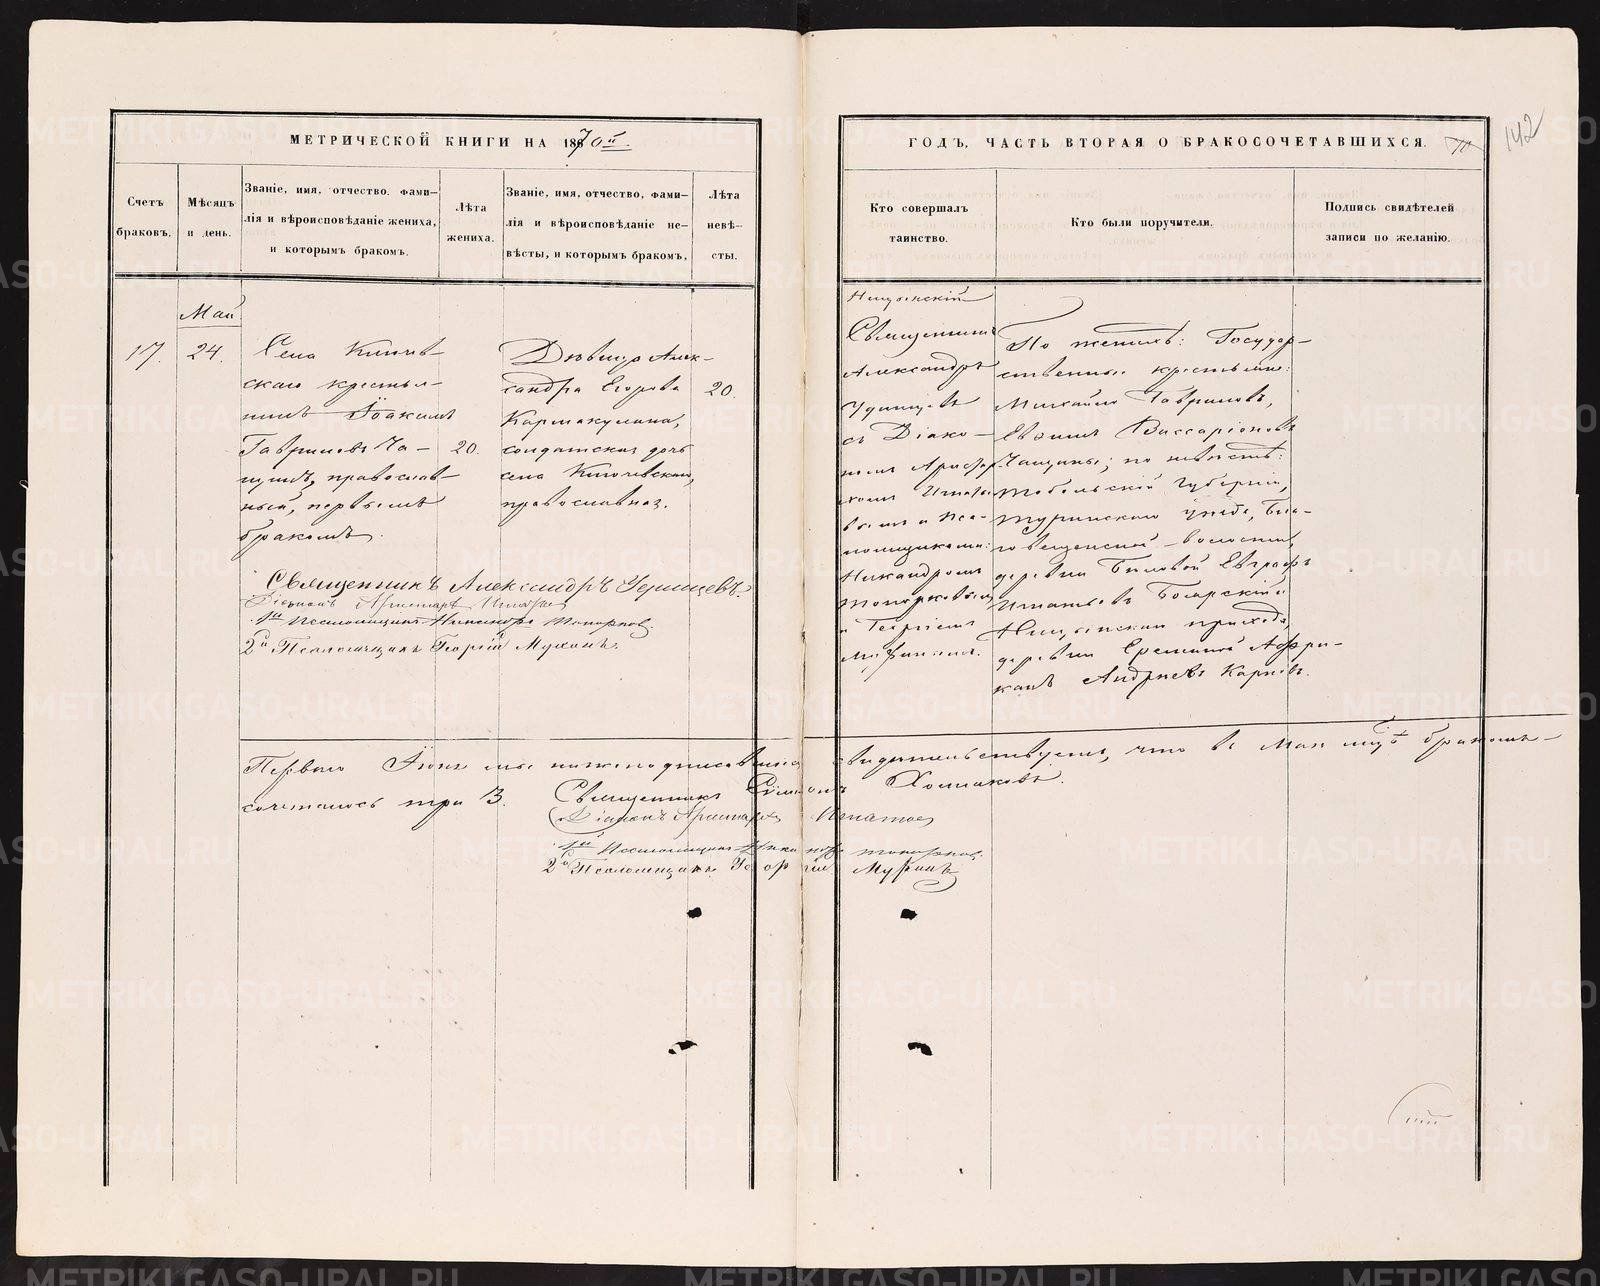 МЕТРИЧЕСКОЙ КНИГИ НА 1870й.
ГОДЪ, ЧАСТЬ ВТОРАЯ О БРАКОСОЧЕТАВШИХСЯ.
142
Счетъ браковъ.
Мѣсяцъ и день.
Званіе, имя, отчество, фами-
лія и вѣроисповѣданіе жениха,
и которымъ бракомъ.
Лѣта жениха.
Званіе, имя, отчество, фами-
лія и вѣроисповѣданіе не-
вѣсты, и которымъ бракомъ.
Лѣта
невѣ-
сты.
Кто совершалъ
таинство.
Кто были поручители.
Подпись свидѣтелей
записи по желанію.
Май
17.
24.
Села Ключев-
скаго крестья-
нинъ Іоакимъ
Гавриловъ Ча-
щинъ, православ-
ный, первымъ
бракомъ.
20.
Дѣвица Алек-
сандра Егорова
Кармакулина,
солдатская дочь
села Ключевскаго,
православная.
20.
Ницынскій
Священникъ
Александръ
Удинцевъ
съ Діако-
номъ
и Пса-
ломщиками:
Никандромъ
Топорковымъ
и Георгіемъ
По женихѣ: Государ-
ственные крестьяне:
Михаилъ Гавриловъ,
Евѳимъ Виссаріоновъ
Чащины; по невѣстѣ:
Тобольской Губерніи,
Туринскаго уѣзда, Бла-
говещенской волости,
деревни Евграфъ
Игнатьевъ Боярскій и
Ницынскаго прихода,
деревни Ереминой Афри-
канъ Андреевъ
Священникъ Александръ Удинцевъ.
Діаконъ Аристархъ Игнатьев
1й Псаломщикъ Никандръ Топорков.
2й Псаломщикъ Георгій
Перваго Іюня мы нижеподписавшіеся свидетельствуемъ, что въ Маѣ мцѣ бракомъ
сочеталось три 3.
Священникъ Симеонъ Хомяковъ.
Діаконъ Аристархъ Игнатьев
1й Псаломщикъ Никандръ Топорков.
2й Псаломщикъ Георгій
METRIKI.GASO-URAL.RU